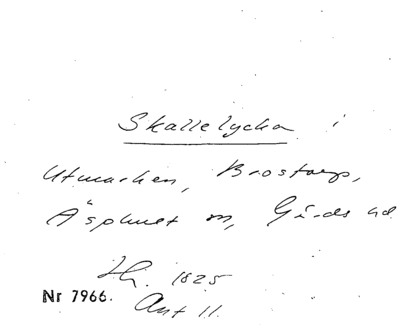 Skallelycka i
Utmarken, Brostorp,
Äsphult sn, Gärds hd.
Hr. 1825
Nr 7966.
Akt 11.